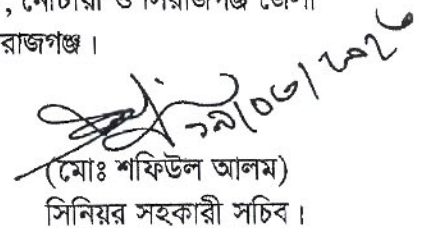 , নোটারী ও সিরাজগঞ্জ জেলা
রাজগঞ্জ।
(মোঃ শফিউল আলম)
সিনিয়র সহকারী সচিব।